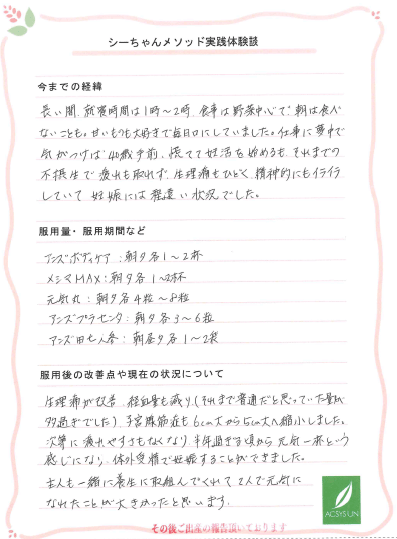 シーちゃんメソッド実践体験談
今までの経緯
長い間、就寝時間は1時〜2時、食事は野菜中心で、朝は食べ
ないことも。甘いものも大好きで毎日口にしていました。仕事に夢中で
気がつけば40歳手前、慌てて妊活を始めるも、それまでの
不摂生で疲れも取れず、生理痛もひどく、精神的にもイライラ
していて 妊娠には程遠い状況でした。
服用量・服用期間など
アンズボディケア：朝夕各1〜2杯
メシマMAX：朝夕各1〜2杯
元気丸：朝夕各4粒〜8粒
アンズプラセンタ：朝夕各3〜6粒
アンズ田七人参：朝昼夕各1〜2袋
服用後の改善点や現在の状況について
生理痛が改善、経血量も減り（それまで普通だと思っていた量が
多過ぎでした）子宮腺筋症も6cm大から5cm大へ縮小しました。
次第に疲れやすさもなくなり、半年過ぎる頃から元気一杯という
感じになり、体外受精で妊娠することができました。
主人も一緒に養生に取組んでくれて2人で元気に
なれたことが大きかったと思います。
AGSYSUN
その後ご出産の報告頂いております